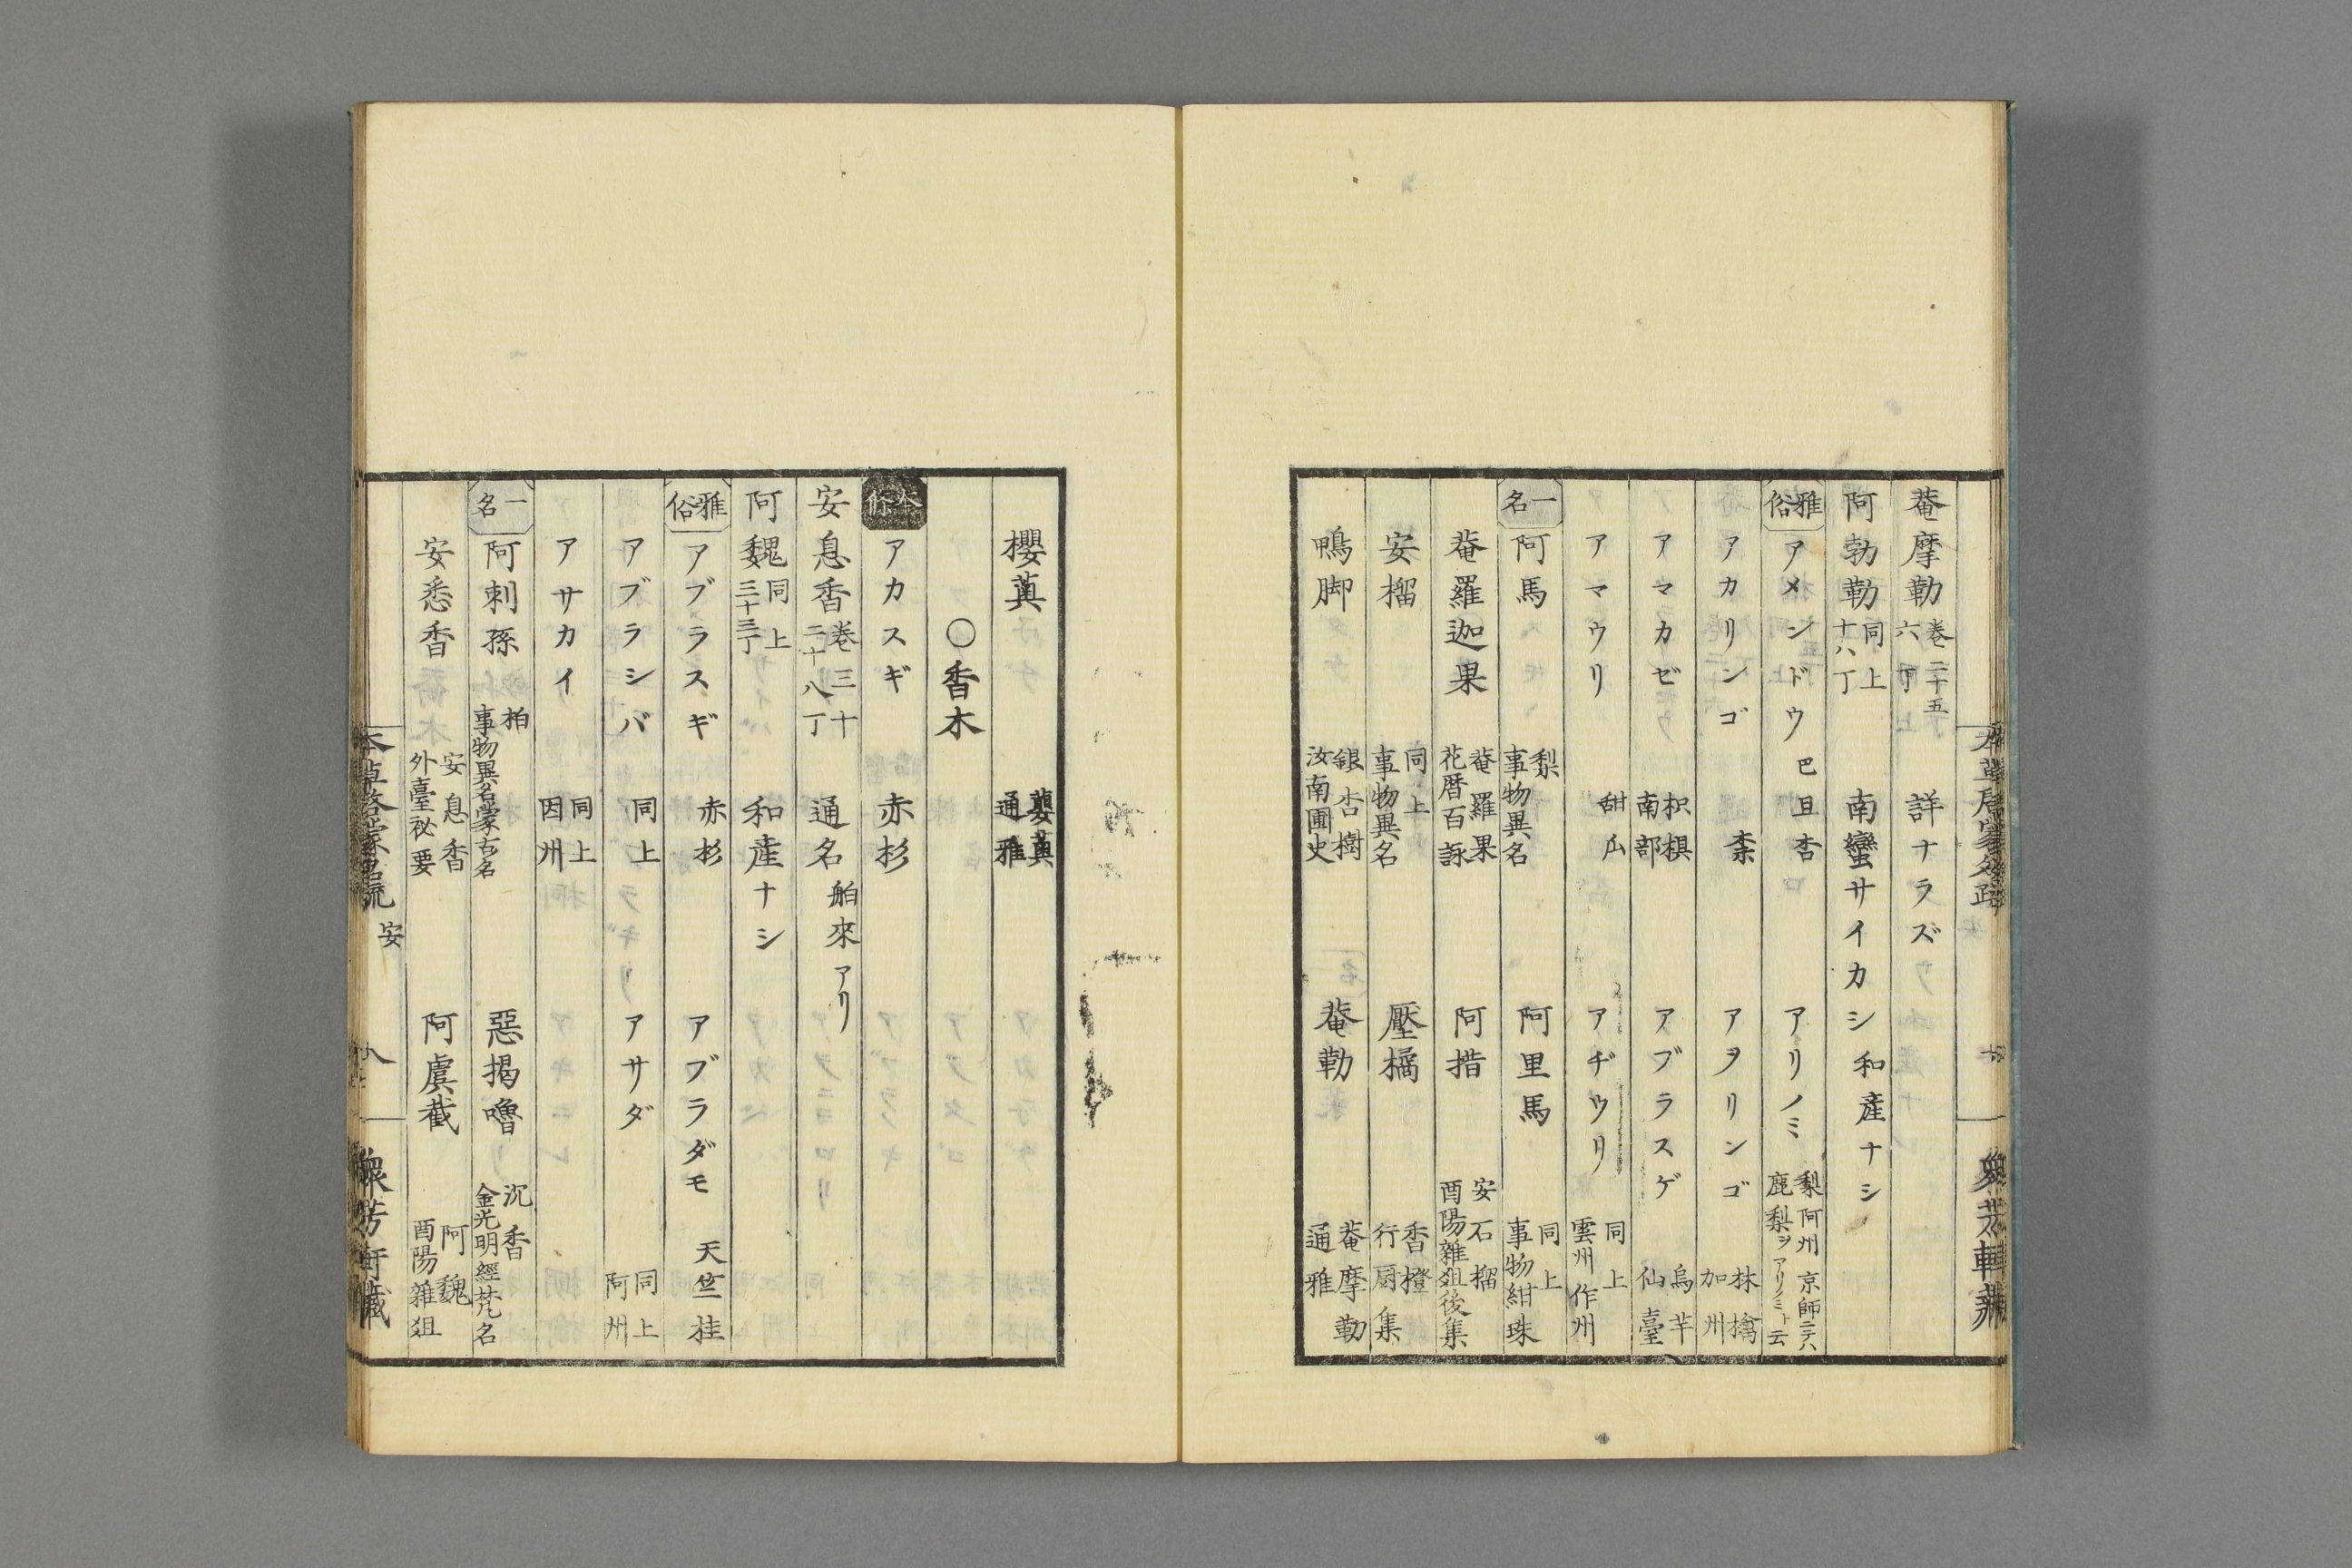 菴摩勒 巻二十五 六丁 詳ナラズ
阿勃勒 同上 十八丁 南蠻サイカシ和産ナシ
雅俗 アメンドウ 巴旦杏 アリノミ 梨阿州 京師ニテハ 鹿梨ヲアリノミト云
アカリンゴ 柰 アヲリンゴ 林檎 加州
アマカゼ 枳椇 南部 アブラスゲ 烏芋 仙臺
アマウリ 甜瓜 アヂウリ 同上 雲州作州
一名 阿馬 梨 事物異名 阿里馬 同上 事物紺珠
菴羅迦果 菴羅果 花暦百詠 阿措 安石榴 酉陽雜俎後集
安榴 同上 事物異名 壓橘 香橙 行厨集
鴨脚 銀杏樹 汝南圃史 菴勒 菴摩勒 通雅
櫻薁 蘡薁 通雅
○香木
本俗 アカスギ 赤杉
安息香 巻三十 二十八丁 通名 舶來アリ
阿魏 同上 三十三丁 和産ナシ
雅俗 アブラスギ 赤杉 アブラダモ 天竺桂
アブラシバ 同上 アサダ 同上 阿州
アサカイ 同上 因州
一名 阿剌孫 柏 事物異名蒙古名 惡揭嚕 沉香 金光明經梵名
安悉香 安息香 外臺祕要 阿虞截 阿魏 酉陽雜俎
本草啓蒙名疏 安 八 衆芳軒藏